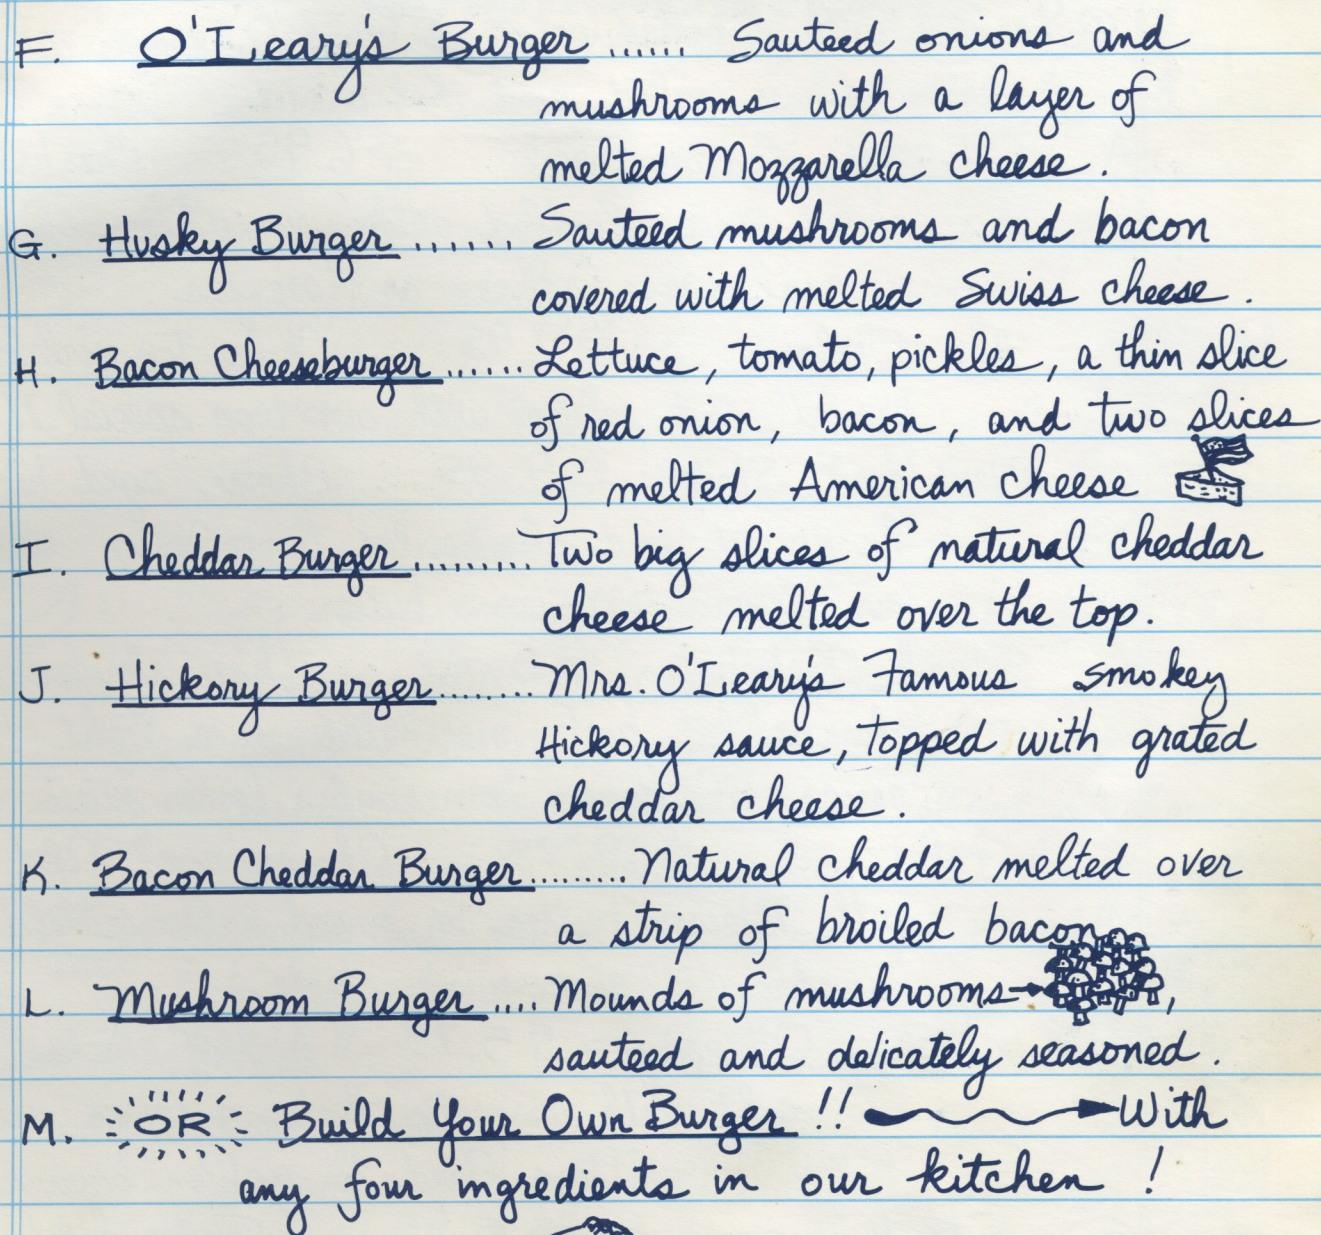 F. O'Leary's Burger ...... Sauteed onions and
mushrooms with a layer of
melted Mozzarella cheese.
G. Husky Burger ...... Sauteed mushrooms and bacon
covered with melted Swiss cheese.
H. Bacon Cheeseburger ...... Lettuce, tomato, pickles, a thin slice
of red onion, bacon, and two slices
of melted American cheese
I. Cheddar Burger ......... Two big slices of natural cheddar
cheese melted over the top.
J. Hickory Burger ........ Mrs. O'Leary's Famous smokey
Hickory sauce, topped with grated
cheddar cheese.
K. Bacon Cheddar Burger ......... Natural cheddar melted over
a strip of broiled bacon
L. Mushroom Burger .... Mounds of mushrooms ,
sauteed and delicately seasoned.
M. OR Build Your Own Burger !! With
any four ingredients in our kitchen!